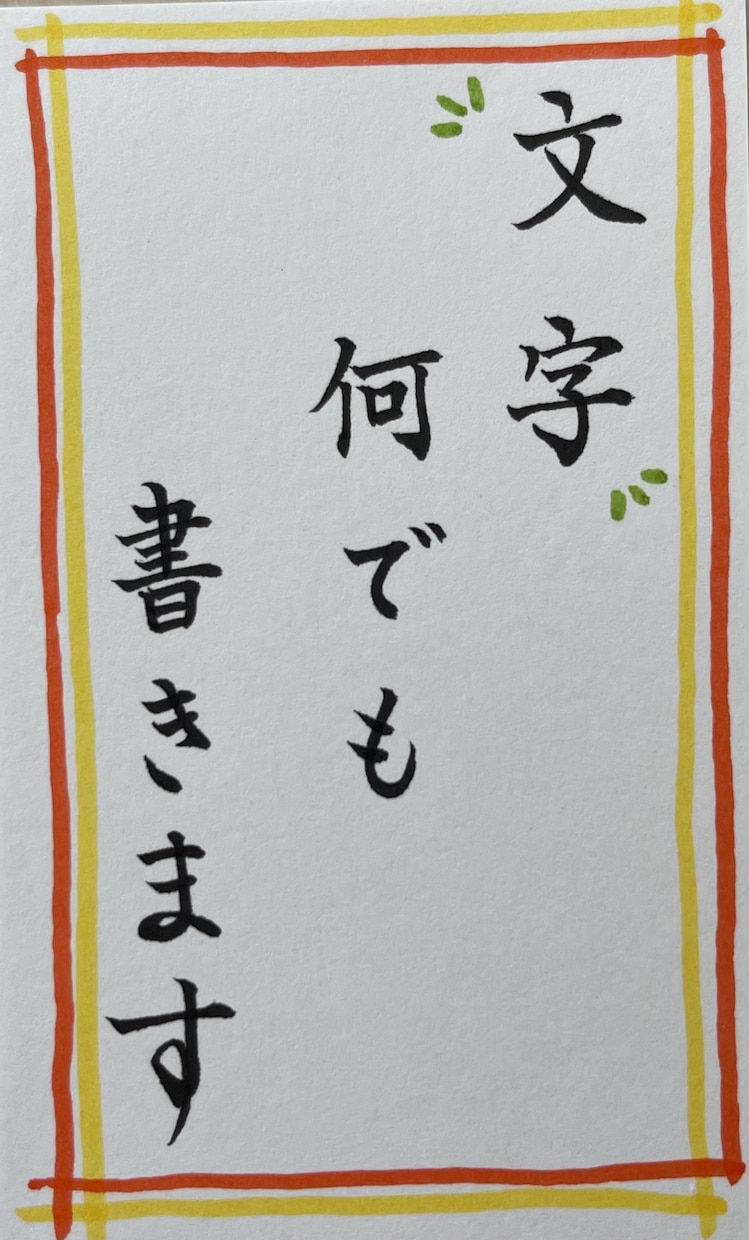 文字
何でも
書きます